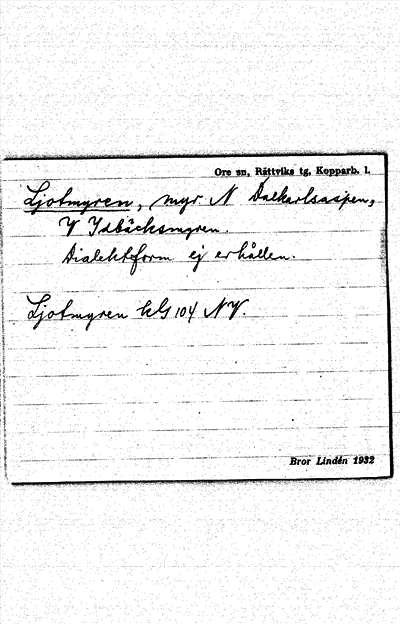 Ore sn, Rättviks tg, Kopparb. l.
Ljotmyren, myr N Dalkarlsaspen,
V Idbäcksmyren.
Dialektform ej erhållen.
Ljotmyren kG 104 NV.
Bror Lindén 1932